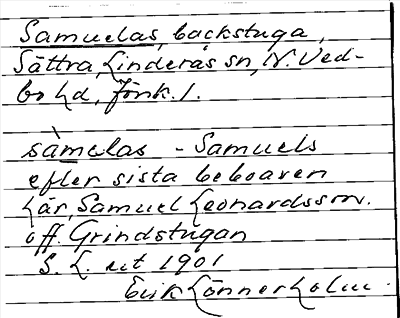 Samuelas, backstuga,
Sättra, Linderås sn, N. Ved-
bo hd, Jönk. l.
sàmelas - Samuels
efter sista beboaren
här, Samuel Leonardsson.
off. Grindstugan
S. L. ut 1901
Erik Lönnerholm.